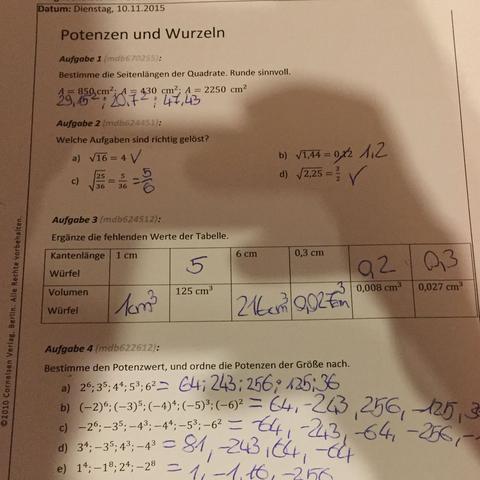 Datum: Dienstag, 10.11.2015
Potenzen und Wurzeln
Aufgabe 1 (mdb670255):
Bestimme die Seitenlängen der Quadrate. Runde sinnvoll.
A = 850 cm²; A = 430 cm²; A = 2250 cm²
Aufgabe 2 (mdb624451):
Welche Aufgaben sind richtig gelöst?
a) √16 = 4 ✓
b) √1,44 = 1,2
c) √25/36 = 5/36 = 5/6
d) √2,25 = 3/2 ✓
Aufgabe 3 (mdb624512):
Ergänze die fehlenden Werte der Tabelle.
Kantenlänge Würfel 1 cm 5 6 cm 0,3 cm 0,2 0,3
Volumen Würfel 1cm³ 125 cm³ 216cm³ 0,027cm³ 0,008 cm³ 0,027 cm³
Aufgabe 4 (mdb622612):
Bestimme den Potenzwert, und ordne die Potenzen der Größe nach.
a) 2⁶; 3⁵; 4⁴; 5³; 6² = 64; 243; 256; 125; 36
b) (−2)⁶; (−3)⁵; (−4)⁴; (−5)³; (−6)² = 64, -243, 256, -125, 3
c) −2⁶; −3⁵; −4³; −4⁴; −5³; −6² = -64, -243, -64, -256, -
d) 3⁴; −3⁵; 4³; −4³ = 81, -243, 64, -64
e) 1⁴; −1⁸; 2⁴; −2⁸ = 1, -1, 16, -256
©2010 Cornelsen Verlag, Berlin. Alle Rechte vorbehalten.